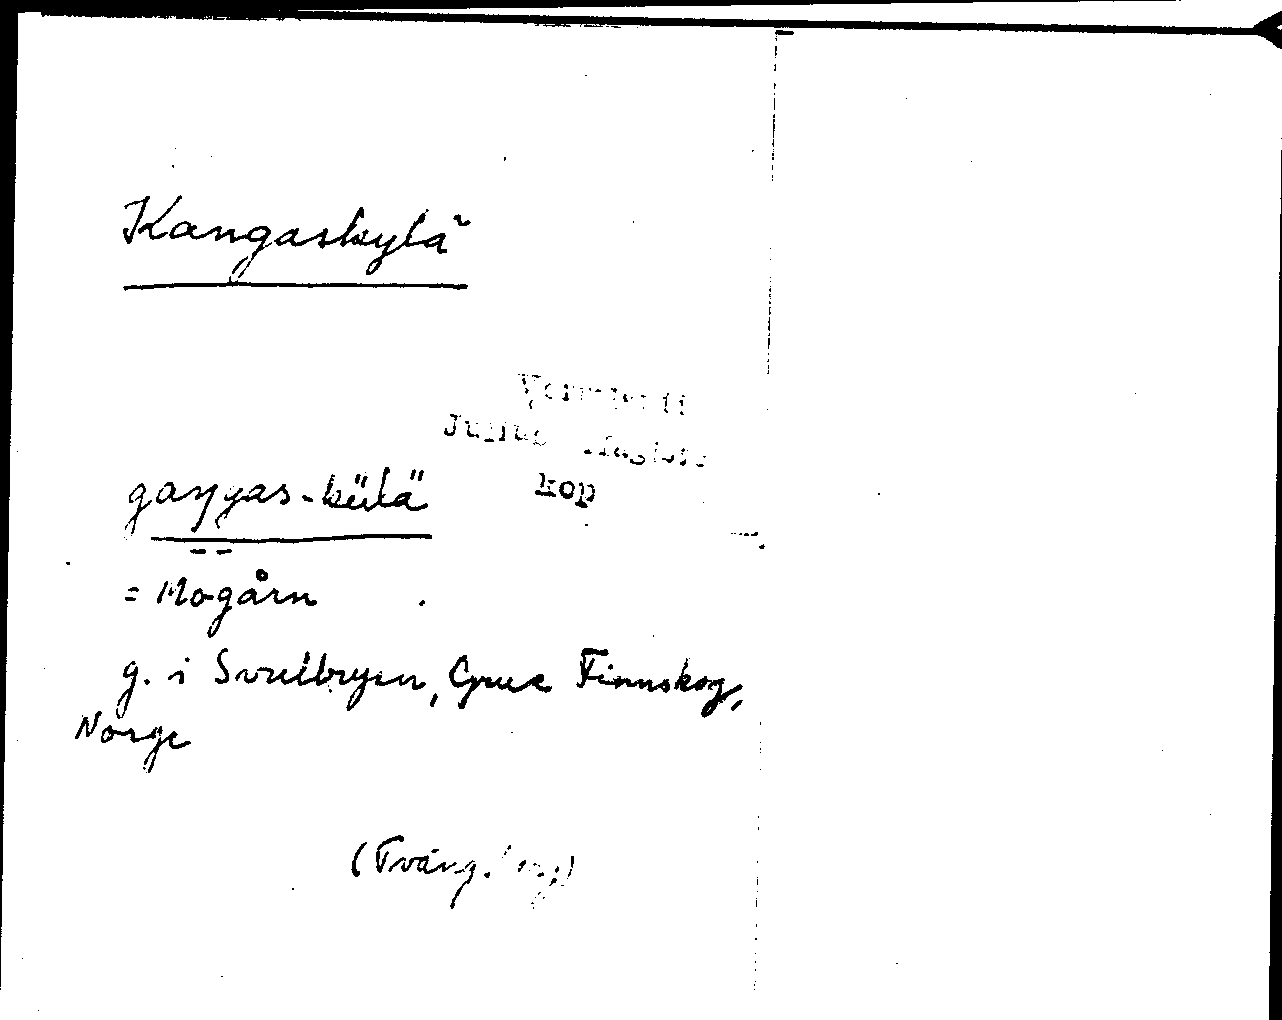 Kangaskylä
Vermlanti
Julius Mägiste
kop
gaŋgas-külä
= Mogårn
g. i Svulbryen, Grue Finnskog,
Norge
(Tväng.